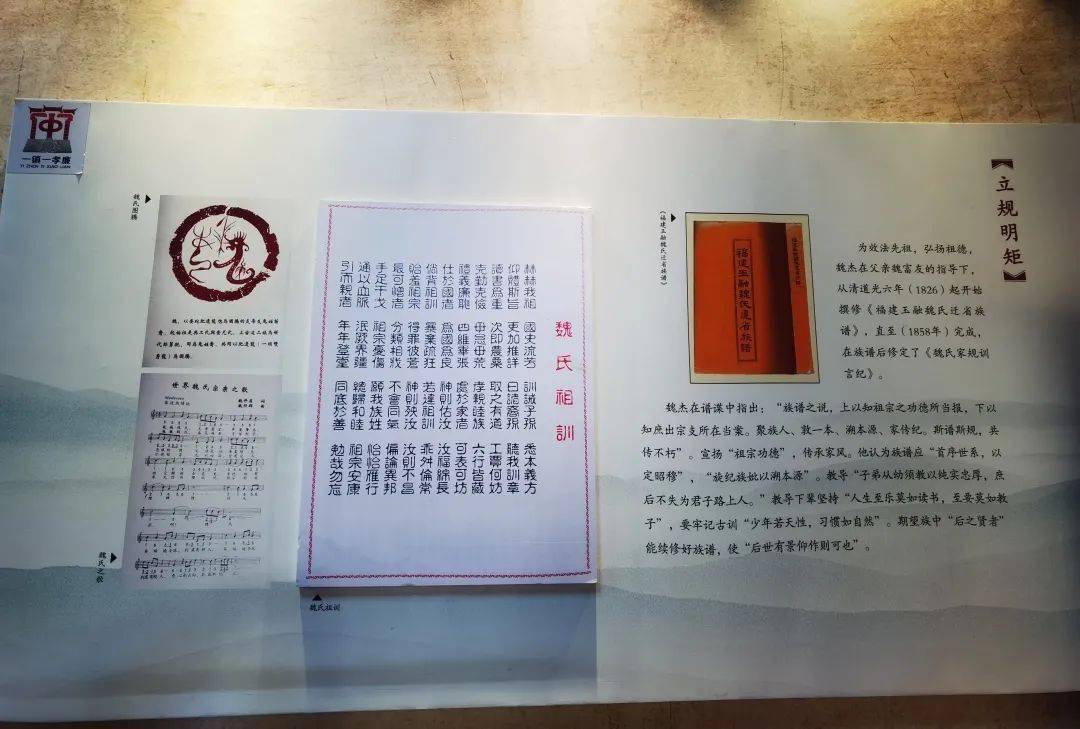 一镇一孝廉
YI ZHEN YI XIAO LIAN
立规明矩
为效法先祖，弘扬祖德，
魏杰在父亲魏富友的指导下，
从清道光六年（1826）起开始
撰修《福建玉融魏氏迁省族
谱》，直至（1858年）完成，
在族谱后修定了《魏氏家规训
言纪》。
魏杰在谱谍中指出：“族谱之说，上以知祖宗之功德所当报，下以
知庶出宗支所在当案。聚族人、敦一本、溯本源、家传纪。斯谱斯规，共
传不朽”。宣扬“祖宗功德”，传承家风。他认为族谱应“首序世系，以
定昭穆”，“旋纪族妣以溯本源”。教导“子弟从幼须教以纯实忠厚，庶
后不失为君子路上人。”教导下辈坚持“人生至乐莫如读书，至要莫如教
子”，要牢记古训“少年若天性，习惯如自然”。期望族中“后之贤者”
能续修好族谱，使“后世有景仰作则可也”。
《福建玉融魏氏迁省族谱》
福建玉融魏氏遷省族譜
魏氏祖訓
林林我祖 國史流芳 訓誡子孫 悉本義方
仰體斯旨 更加推詳 曰諸裔孫 聽我訓章
讀書為重 次即農桑 取之有道 工賈何妨
克勤克儉 毋怠毋荒 孝親睦族 六行皆藏
禮義廉恥 四維畢張 處於家者 可表可坊
仕於國者 為國為良 神則佑汝 汝福綿長
倘背祖訓 暴棄疏狂 若違祖訓 乖舛倫常
貽羞祖宗 得罪彼蒼 神則殃汝 汝則不昌
最可憎者 分類相戕 不會同氣 偏論異邦
手足干戈 祖宗憂傷 願我族姓 怡怡雁行
通以血脈 泯厥界疆 歸和睦 祖宗安康
引而親者 年年登堂 同底於善 勉哉勿忘
魏氏祖训
魏氏图腾
世界魏氏宗亲之歌
魏氏之歌